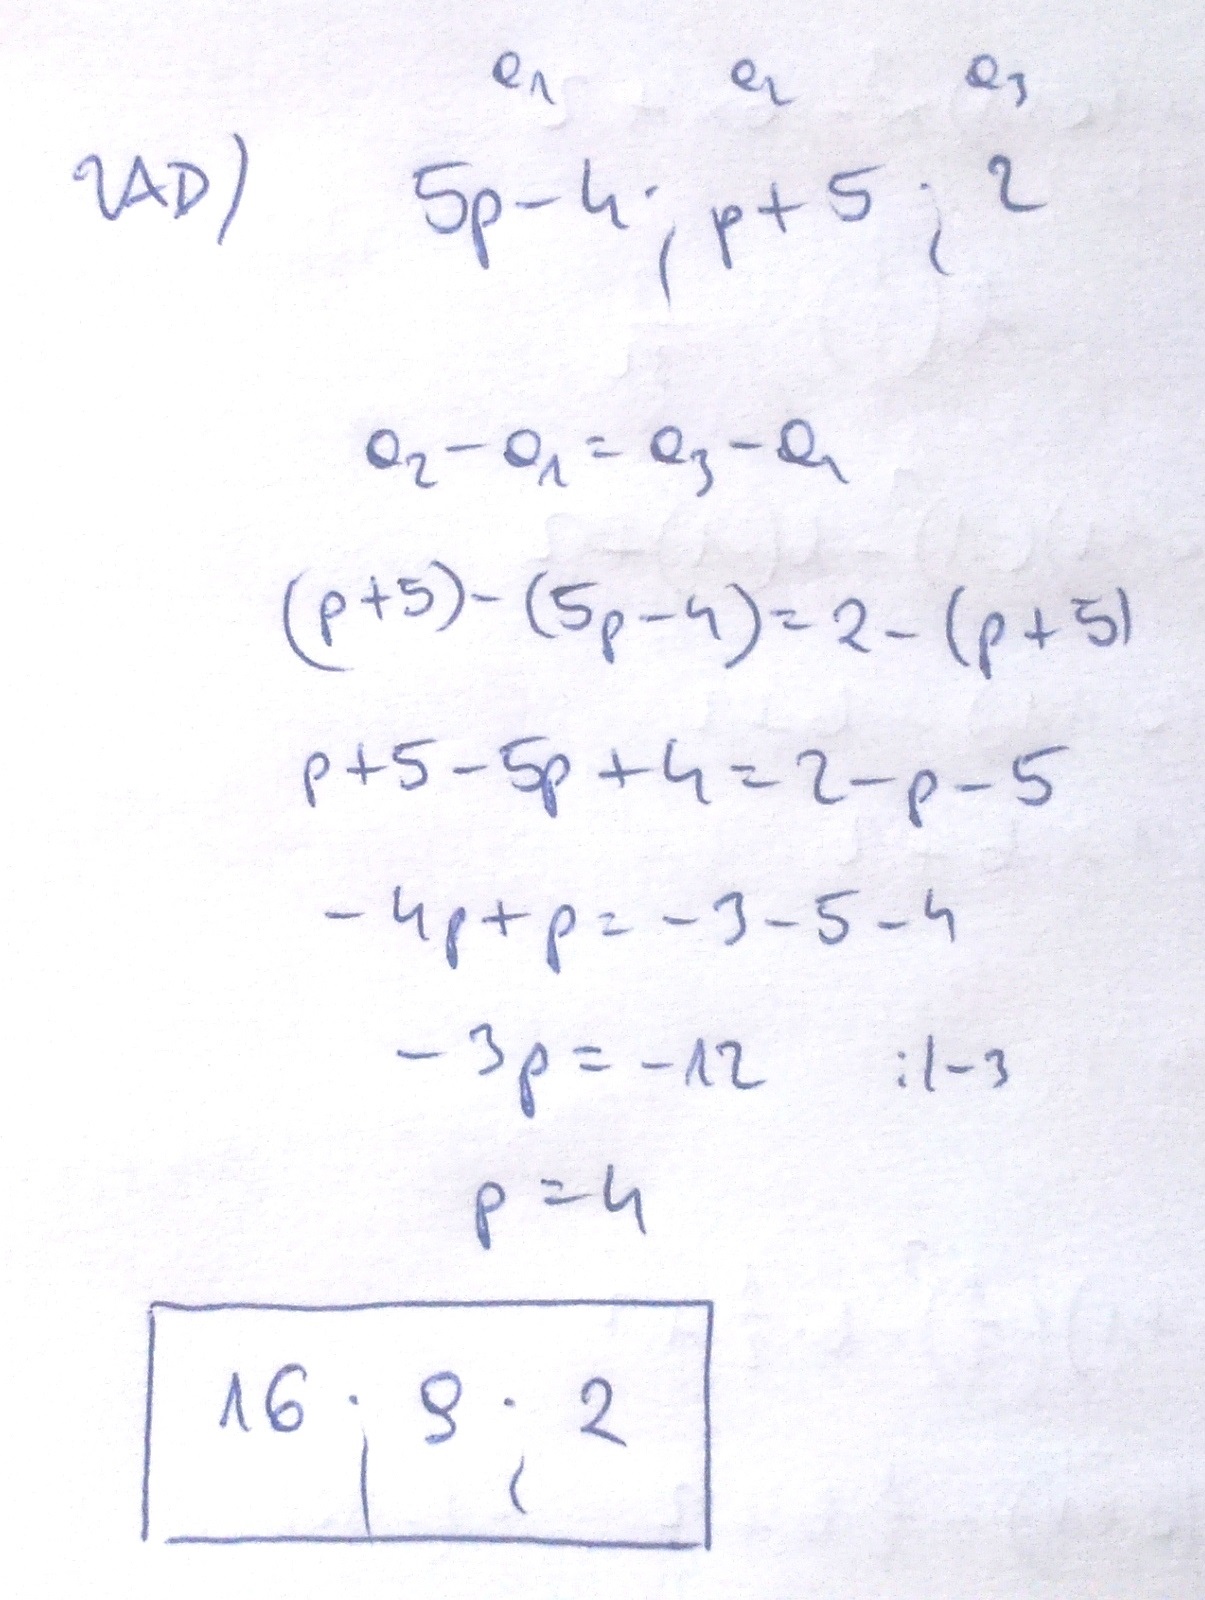 a₁ a₂ a₃
ZAD) 5p-4 ; p+5 ; 2
a₂-a₁=a₃-a₁
(p+5)-(5p-4)=2-(p+5)
p+5-5p+4=2-p-5
-4p+p=-3-5-4
-3p=-12 :1-3
p=4
16 ; 9 ; 2